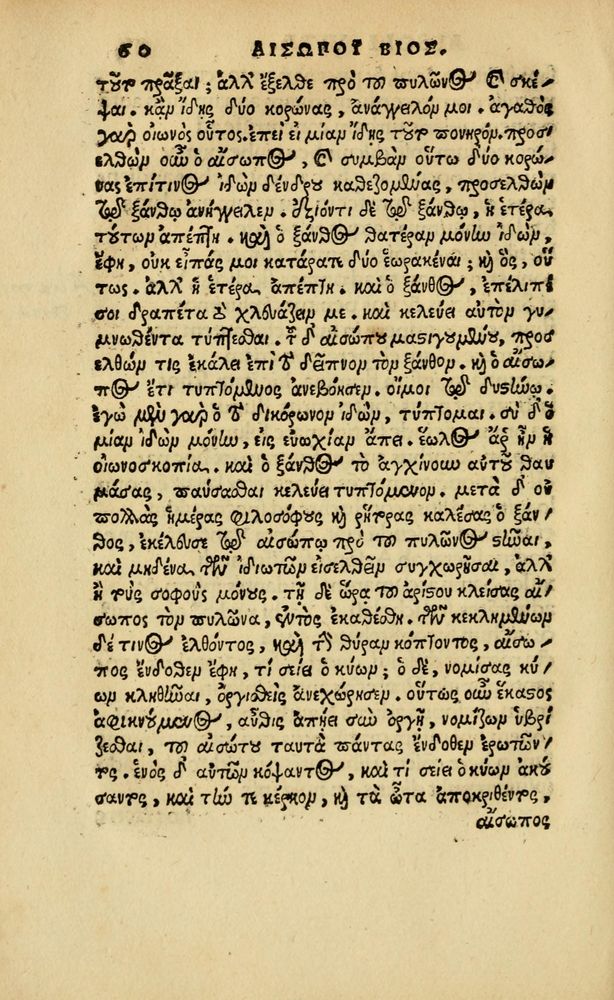 60 ΑΙΣΩΠΟΥ ΒΙΟΣ.
τοῦτον πρᾶξαι; ἀλλ' ἔξελθε πρὸ τοῦ πυλῶνος καὶ σκέ/
ψαι. κἂν ἴδῃς δύο κορώνας, ἀνάγγειλόν μοι. ἀγαθὸς
γὰρ οἰωνὸς οὗτος. ἐπεὶ εἰ μίαν ἴδῃς τοῦτον πονηρόν. προσ/
ελθὼν οὖν ὁ αἴσωπος, καὶ συμβὰν οὕτω δύο κορώ/
νας ἐπί τινος ἰδὼν δένδρου καθεζομένας, προσελθὼν
τῷ ξάνθῳ ἀνήγγειλεν. ἐξιόντι δὲ τῷ ξάνθῳ, ἡ ἑτέρα
τούτων ἀπέπτη. καὶ ὁ ξάνθος θατέραν μόνην ἰδὼν,
ἔφη, οὐκ εἶπάς μοι κατάρατε δύο ἑωρακέναι; καὶ ὃς, οὕ
τως. ἀλλ' ἡ ἑτέρα ἀπέπτη. καὶ ὁ ξάνθος, ἐπέλιπέ
σοι δραπέτα τὸ χλευάζειν με. καὶ κελεύει αὐτὸν γυ/
μνωθέντα τύπτεσθαι. τοῦ δ' αἰσώπου μαστιγουμένου, προσ
ελθών τις ἐκάλει ἐπὶ τὸ δεῖπνον τὸν ξάνθον. καὶ ὁ αἴσω/
πος ἔτι τυπτόμενος ἀνεβόησεν. οἴμοι τῷ δυστήνῳ.
ἐγὼ μὲν γὰρ ὁ τὸ δικόρωνον ἰδὼν, τύπτομαι. σὺ δ' ὁ
μίαν ἰδὼν μόνην, εἰς εὐωχίαν ἄπει. ἕωλος ἄρ' ἦν ἡ
οἰωνοσκοπία. καὶ ὁ ξάνθος τὸ ἀγχίνουν αὐτοῦ θαυ
μάσας, παύσασθαι κελεύει τυπτόμενον. μετὰ δ' οὐ
πολλὰς ἡμέρας φιλοσόφους καὶ ῥήτορας καλέσας ὁ ξάν/
θος, ἐκέλευσε τῷ αἰσώπῳ πρὸ τοῦ πυλῶνος στῆναι,
καὶ μηδένα τῶν ἰδιωτῶν εἰσελθεῖν συγχωρῆσαι, ἀλλ'
ἢ τοὺς σοφοὺς μόνους. τῇ δὲ ὥρα τοῦ ἀρίστου κλείσας αἴ
σωπος τὸν πυλῶνα, ἐντὸς ἐκαθέσθη. τῶν κεκλημένων
δέ τινος ἐλθόντος, καὶ τὴν θύραν κόπτοντος, αἴσω/
πος ἔνδοθεν ἔφη, τί σείει ὁ κύων; ὁ δὲ, νομίσας κύ/
ων κληθῆναι, ὀργισθεὶς ἀνεχώρησεν. οὕτως οὖν ἕκαστος
ἀφικνούμενος, αὖθις ἀπῄει σὺν ὀργῇ, νομίζων ὑβρί
ζεσθαι, τοῦ αἰσώπου ταυτὰ πάντας ἔνδοθεν ἐρωτῶν/
τος. ἑνὸς δ' αὐτῶν κόψαντος, καὶ τί σείει ὁ κύων ἀκού
σαντος, καὶ τήν τε κέρκον, καὶ τὰ ὦτα ἀποκριθέντος,
αἴσωπος